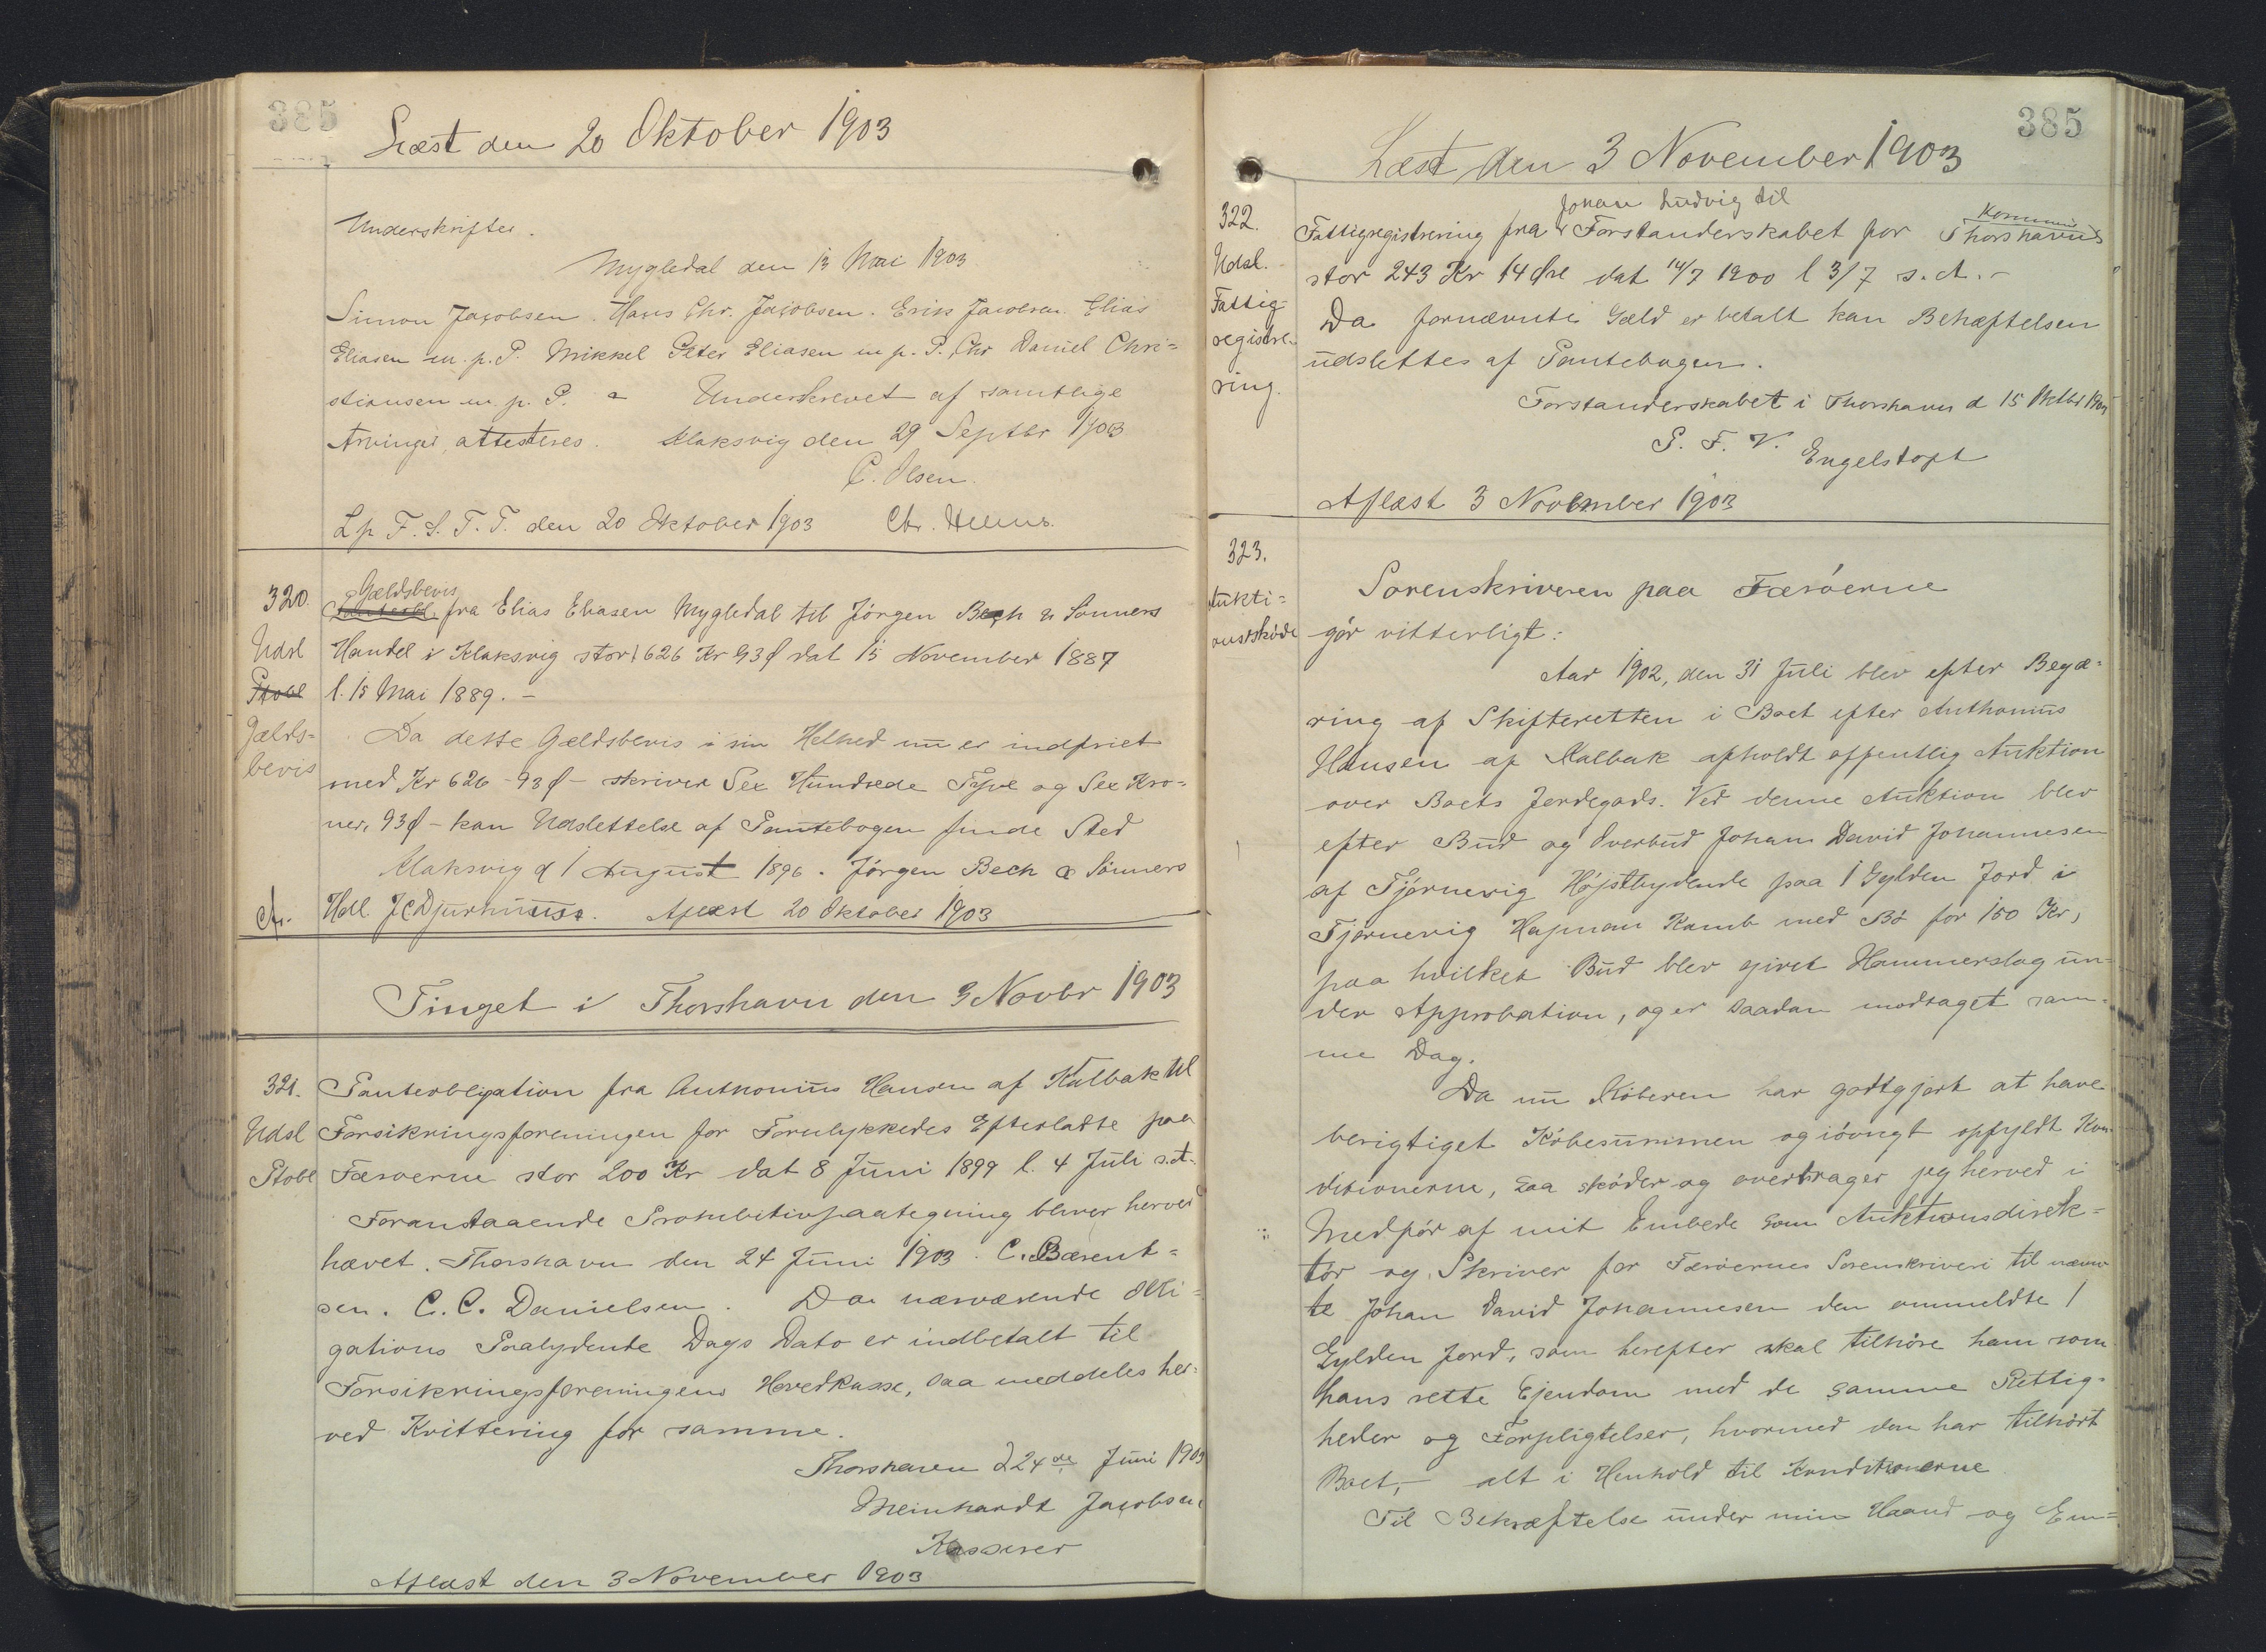 385
Læst den 20 Oktober 1903
Underskrifter.
Mygledal den 13 Mai 1903
Simon Jacobsen. Hans Chr. Jacobsen. Erik Jacobsen. Elias
Eliasen m. p. P. Mikkel Peter Eliasen m. p. P. Chr Daniel Chri=
stiansen m. p. P. Underskrevet af samtlige
Arvinger, attesteres. Klaksvig den 29 Septbr 1903
C. Olsen.
L p F. S. T. T. den 20 Oktober 1903 Chr.
320.
Udsl
Ptobl
Gælds=
bevis
Gældsbevis
fra Elias Eliasen Mygledal til Jørgen Bech & Sønners
Handel i Klaksvig stor 1626 Kr 93 Ø dat 15 November 1887
l. 15 Mai 1889. –
Da dette Gældsbevis i sin Helhed nu er indfriet
med Kr 626 - 93 Ø – skriver Sex Hundrede Tyve og Sex Kro=
ner, 93 Ø – kan Udslettelse af Pantebogen finde Sted
Klaksvig d 1 August 1896. Jørgen Bech & Sønners
Hdl J C Djurhuus. Aflæst 20 Oktober 1903
Tinget i Thorshavn den 3 Novbr 1903
321.
Udsl
Ptobl
Panteobligation fra Anthonius Hansen af Kalbak til
Forsikringsforeningen for Forulykkedes Efterladte paa
Færøerne stor 200 Kr dat 8 Juni 1899 l. 4 Juli s. A.
Foranstaaende Prohibitivpaategning bliver herved
hævet. Thorshavn den 24 Juni 1903. C. Bærent=
sen. C. C. Danielsen. Da nærværende Obli=
gations Paalydende Dags Dato er indbetalt til
Forsikringsforeningens Hovedkasse, saa meddeles her=
ved Kvittering for samme.
Thorshavn d 24de Juni 1903
Meinhardt Jacobsen
Kasserer
Aflæst den 3 November 1903
385
Læst den 3 November 1903
322.
Udsl.
Fattig=
registre=
ring.
Johan Ludvig til
Kommune
Fattigregistrering fra Forstanderskabet for Thorshavns
stor 243 Kr 14 Øre dat 14/7 1900 l 3/7 s. A. –
Da fornævnte Gæld er betalt kan Behæftelsen
udslettes af Pantebogen.
Forstanderskabet i Thorshavn d 15 Oktbr 1903
P. F. V.
Engelstoft
Aflæst 3 November 1903
323.
Aukti=
onsskøde
Sorenskriveren paa Færøerne
gør vitterligt:
Aar 1902, den 31 Juli blev efter Begæ=
ring af Skifteretten i Boet efter Anthonius
Hansen af Kalbak afholdt offentlig Auktion
over Boets Jordegods. Ved denne Auktion blev
efter Bud og Overbud Johan David Johannesen
af Tjørnevig Højstbydende paa 1 Gylden Jord i
Tjørnevig Hagman Kamb med Bø for 150 Kr,
paa hvilket Bud blev givet Hammerslag un=
der Approbation, og er saadan modtaget sam=
me Dag.
Da nu Køberen har godtgjort at have
berigtiget Købesummen og iøvrigt opfyldt Kon=
ditionerne, saa skøder og overdrager jeg herved i
Medfør af mit Embede som Auktionsdirek=
tør og Skriver for Færøernes Sorenskriveri til nævn=
te Johan David Johannesen den ommeldte 1
Gylden Jord, som herefter skal tilhøre ham som
hans rette Ejendom med de samme Rettig=
heder og Forpligtelser, hvormed den har tilhørt
Boet, – alt i Henhold til Konditionerne
Til Bekræftelse under min Haand og Em=